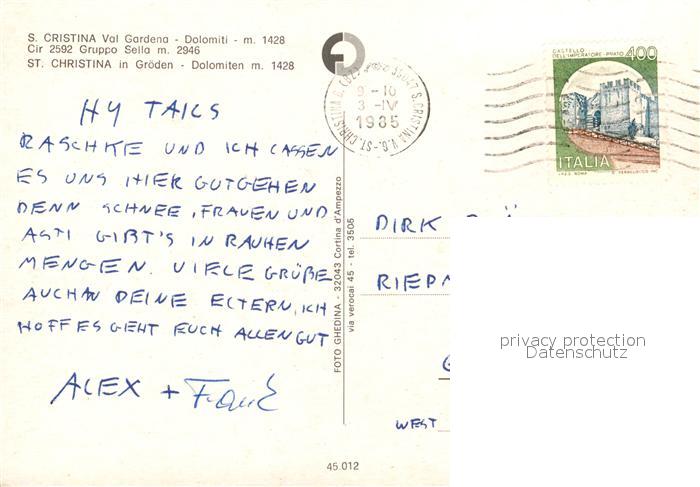 S. CRISTINA Val Gardena - Dolomiti - m. 1428
Cir 2592 Gruppo Sella m. 2946
ST. CHRISTINA in Gröden - Dolomiten m. 1428
HY TAILS
RASCHKE UND ICH LASSEN
ES UNS HIER GUTGEHEN
DENN SCHNEE, FRAUEN UND
ASTI GIBT'S IN RAUHEN
MENGEN. VIELE GRÜßE
AUCH AN DEINE ELTERN, ICH
HOFF ES GEHT EUCH ALLEN GUT
ALEX +
45.012
FOTO GHEDINA - 32043 Cortina d'Ampezzo
via verocai 45 - tel. 3505
39047 S. CRISTINA V. G. - ST. CHRISTINA G. (BZ)
9-10
3-IV
1985
CASTELLO
DELL'IMPERATORE - PRATO
400
ITALIA
I.P.Z.S. ROMA
DIRK
RIEP
WEST
privacy protection
Datenschutz